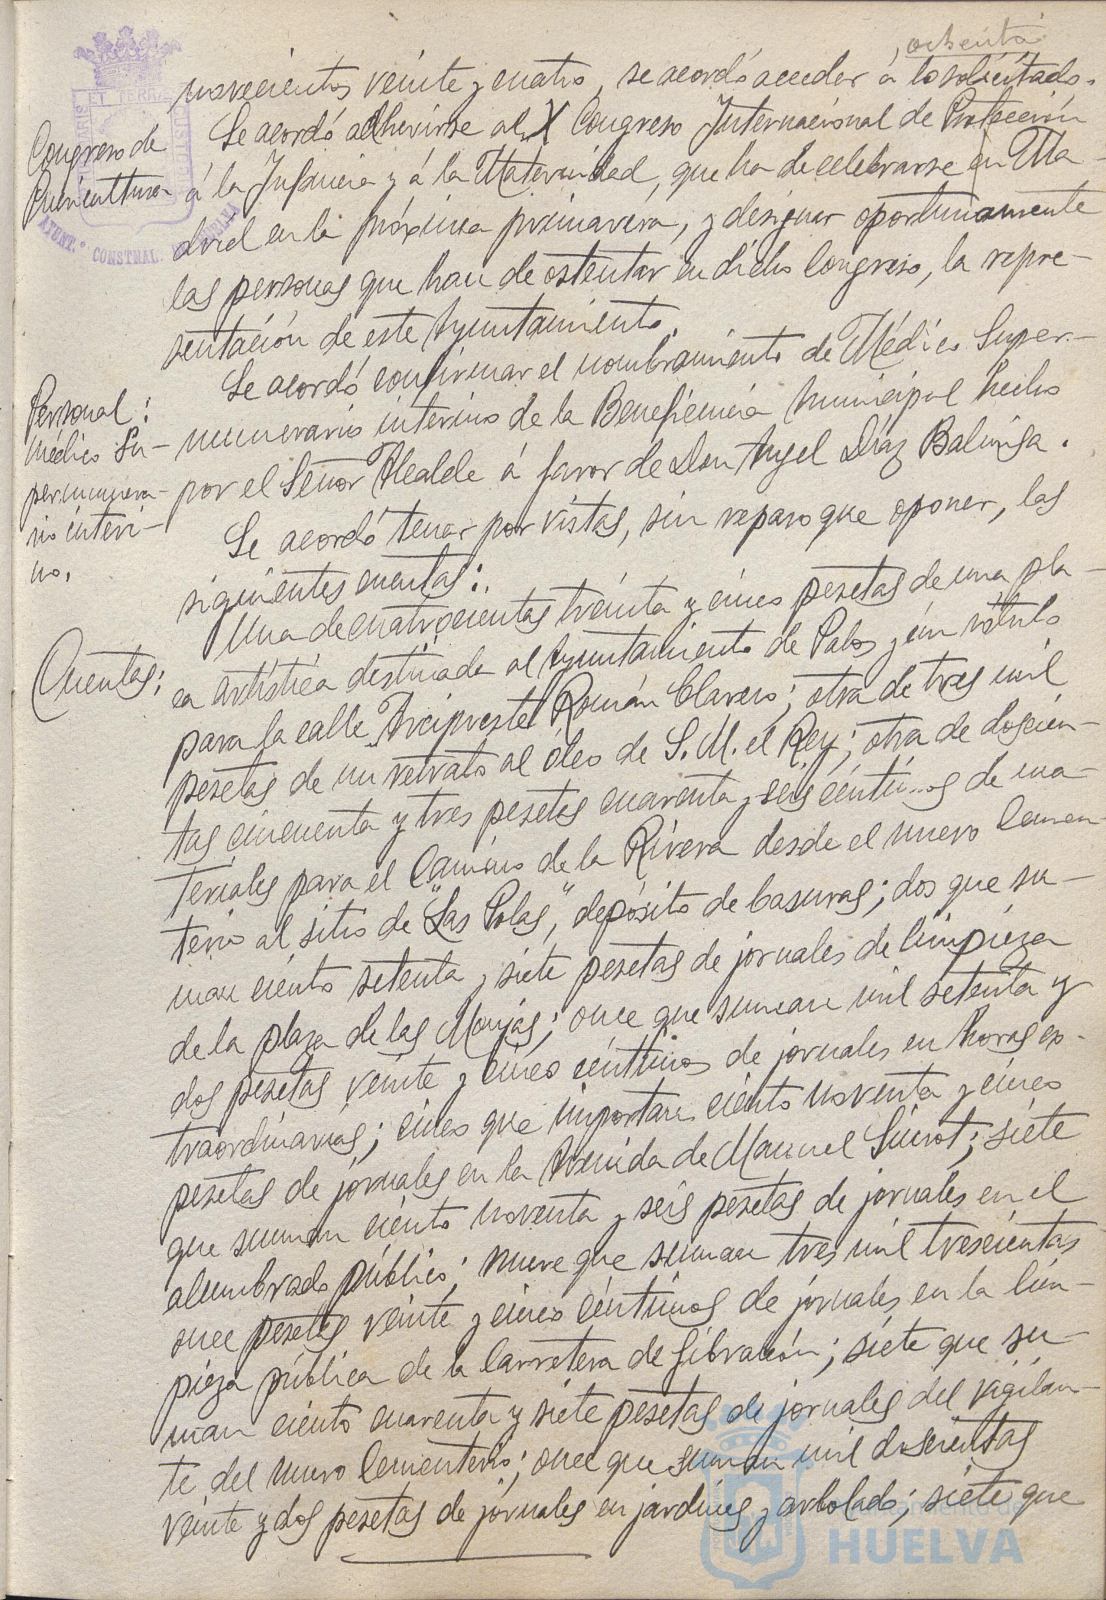 , ochenta
novecientos veinte y cuatro, se acordó acceder á lo solicitado.
Congreso de
Puericultura
Se acordó adherirse al X Congreso Internacional de Protección
á la Infancia y á la Maternidad, que ha de celebrarse en Ma-
drid en la próxima primavera, y designar oportunamente
las personas que han de ostentar en dicho Congreso, la repre-
sentación de este Ayuntamiento.
Personal:
Médico Su-
pernumera-
rio interi-
no.
Se acordó confirmar el nombramiento de Médico Super-
numerario interino de la Beneficencia Municipal hecho
por el Señor Alcalde á favor de Don Angel Díaz
Se acordó tener por vistas, sin reparo que oponer, las
siguientes cuentas:
Cuentas:
Una de cuatrocientas treinta y cinco pesetas de una pla-
ca artística destinada al Ayuntamiento de Palos y un rótulo
para la calle Arcipreste Román Clavero; otra de tres mil
pesetas de un retrato al óleo de S. M. el Rey; otra de doscien-
tas cincuenta y tres pesetas cuarenta y seis céntimos de ma-
teriales para el Camino de la Rivera desde el nuevo Cemen-
terio al sitio de "Las Polas", depósito de basuras; dos que su-
man ciento setenta y siete pesetas de jornales de limpieza
de la plaza de las Monjas; once que suman mil setenta y
dos pesetas veinte y cinco céntimos de jornales en horas ex-
traordinarias; cinco que importan ciento noventa y cinco
pesetas de jornales en la Avenida de Manuel Siurot; siete
que suman ciento noventa y seis pesetas de jornales en el
alumbrado público; nueve que suman tres mil trescientas
once pesetas veinte y cinco céntimos de jornales en la lim-
pieza pública de la Carretera de Gibraleón; siete que su-
man ciento cuarenta y siete pesetas de jornales del vigilan-
te del nuevo Cementerio; once que suman mil doscientas
veinte y dos pesetas de jornales en jardines y arbolado; siete que
Ayuntamiento de
HUELVA